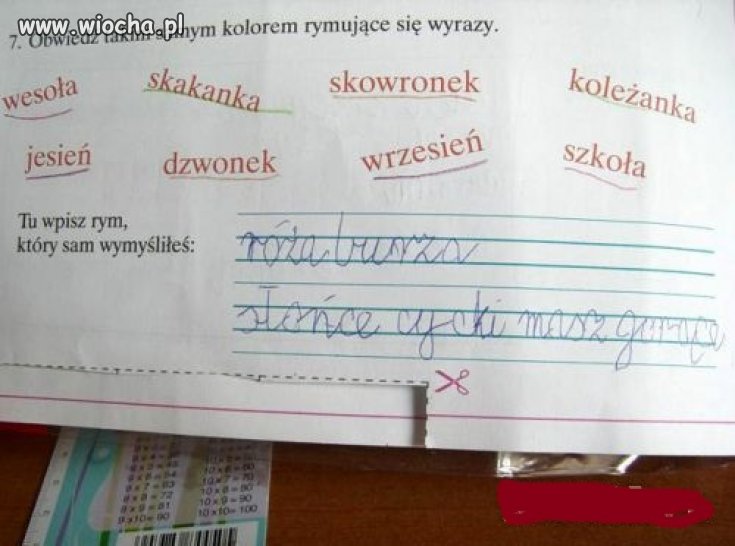 www.wiocha.pl
7. Obwiedź takim samym kolorem rymujące się wyrazy.
wesoła skakanka skowronek koleżanka
jesień dzwonek wrzesień szkoła
Tu wpisz rym,
który sam wymyśliłeś:
róża burza
słońce cycki masz gorące
9 x 7 = 63 10 x 7 = 70
9 x 8 = 72 10 x 8 = 80
9 x 9 = 81 10 x 9 = 90
9 x 10 = 90 10 x 10 = 100